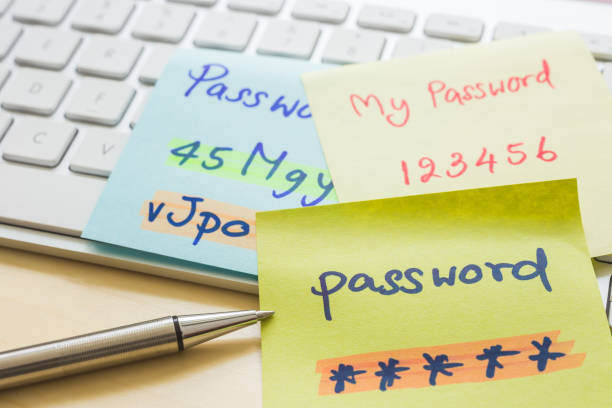 F
C V
Passwo
45Mgy
vJpo
My Password
123456
password
*****